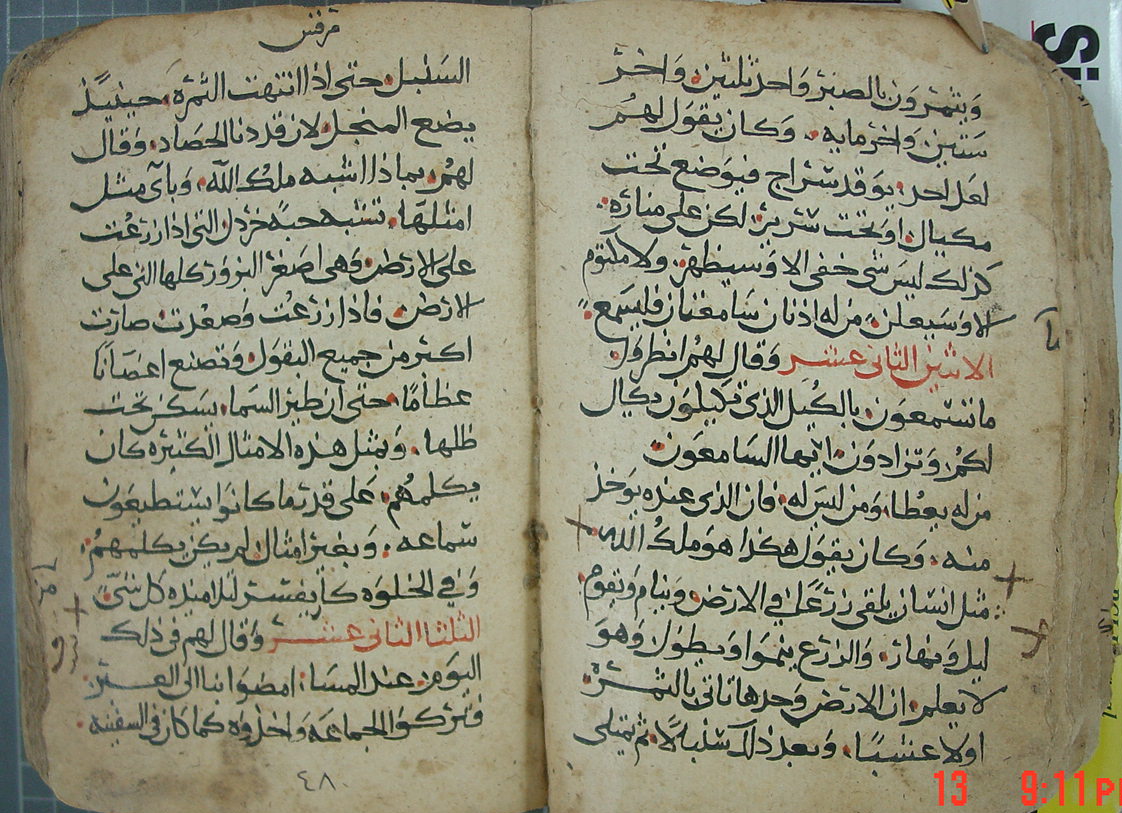 ويثمرون بالصبر واحد ثلثين. واخر
ستين. واخر مايه. وكان يقول لهم
لعل احد. يوقد سراج فيوضع تحت
مكيال. او تحت سرير. لكن على مناره.
كذلك ليس شى خفى الا وسيظهر. ولا مكتوم
الا وسيعلن. من له اذنان سامعتان فليسمع
الاثنين الثانى عشر وقال لهم انظروا.
ما تستمعون. بالكيل الذى تكيلون يكال
لكم. وتزادون. ايها السامعون
من له يعطا. ومن ليس له. فان الذى عنده يوخذ
منه. وكان يقول هكذا هو ملك الله.
مثل انسان يلقى زرعا على الارض. وينام ويقوم
ليل ونهار. والزرع ينموا ويطول. وهو
لا يعلم. ان الارض وحدها تاتى بالثمره.
اولا عشبا. وبعد ذلك سنبلا. ثم يمتلى
مرقس
السنبل. حتى اذا انتهت الثمره. حينيذ
يضع المنجل. لان قد دنا الحصاد. وقال
لهم. بماذا اشبه ملك الله. وباى مثل
امثلها. تشبه حبة خردل التى اذا زرعت
على الارض. وهى اصغر البزور كلها التى على
الارض. فاذا زرعت وصعدت صارت
اكبر من جميع البقول. وتصنع اغصانا
عظاما. حتى ان طير السما. يسكن تحت
ظلها. وبمثل هذه الامثال الكثيره كان
يكلمهم. على قدر ما كانوا يستطيعون
سماعه. وبغير امثال. لم يكن يكلمهم.
وفي الخلوه كان يفسر لتلاميذه كل شى.
الثلثا الثانى عشر وقال لهم فى ذلك
اليوم. عند المسا. امضوا بنا الى العبر.
فتركوا الجماعه واخذوه كما كان فى السفينه
٤٨
13 9:11